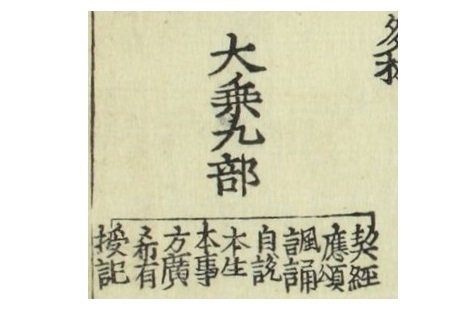 大乗九部
契經
應頌
諷誦
自説
本生
本事
方廣
希有
授記